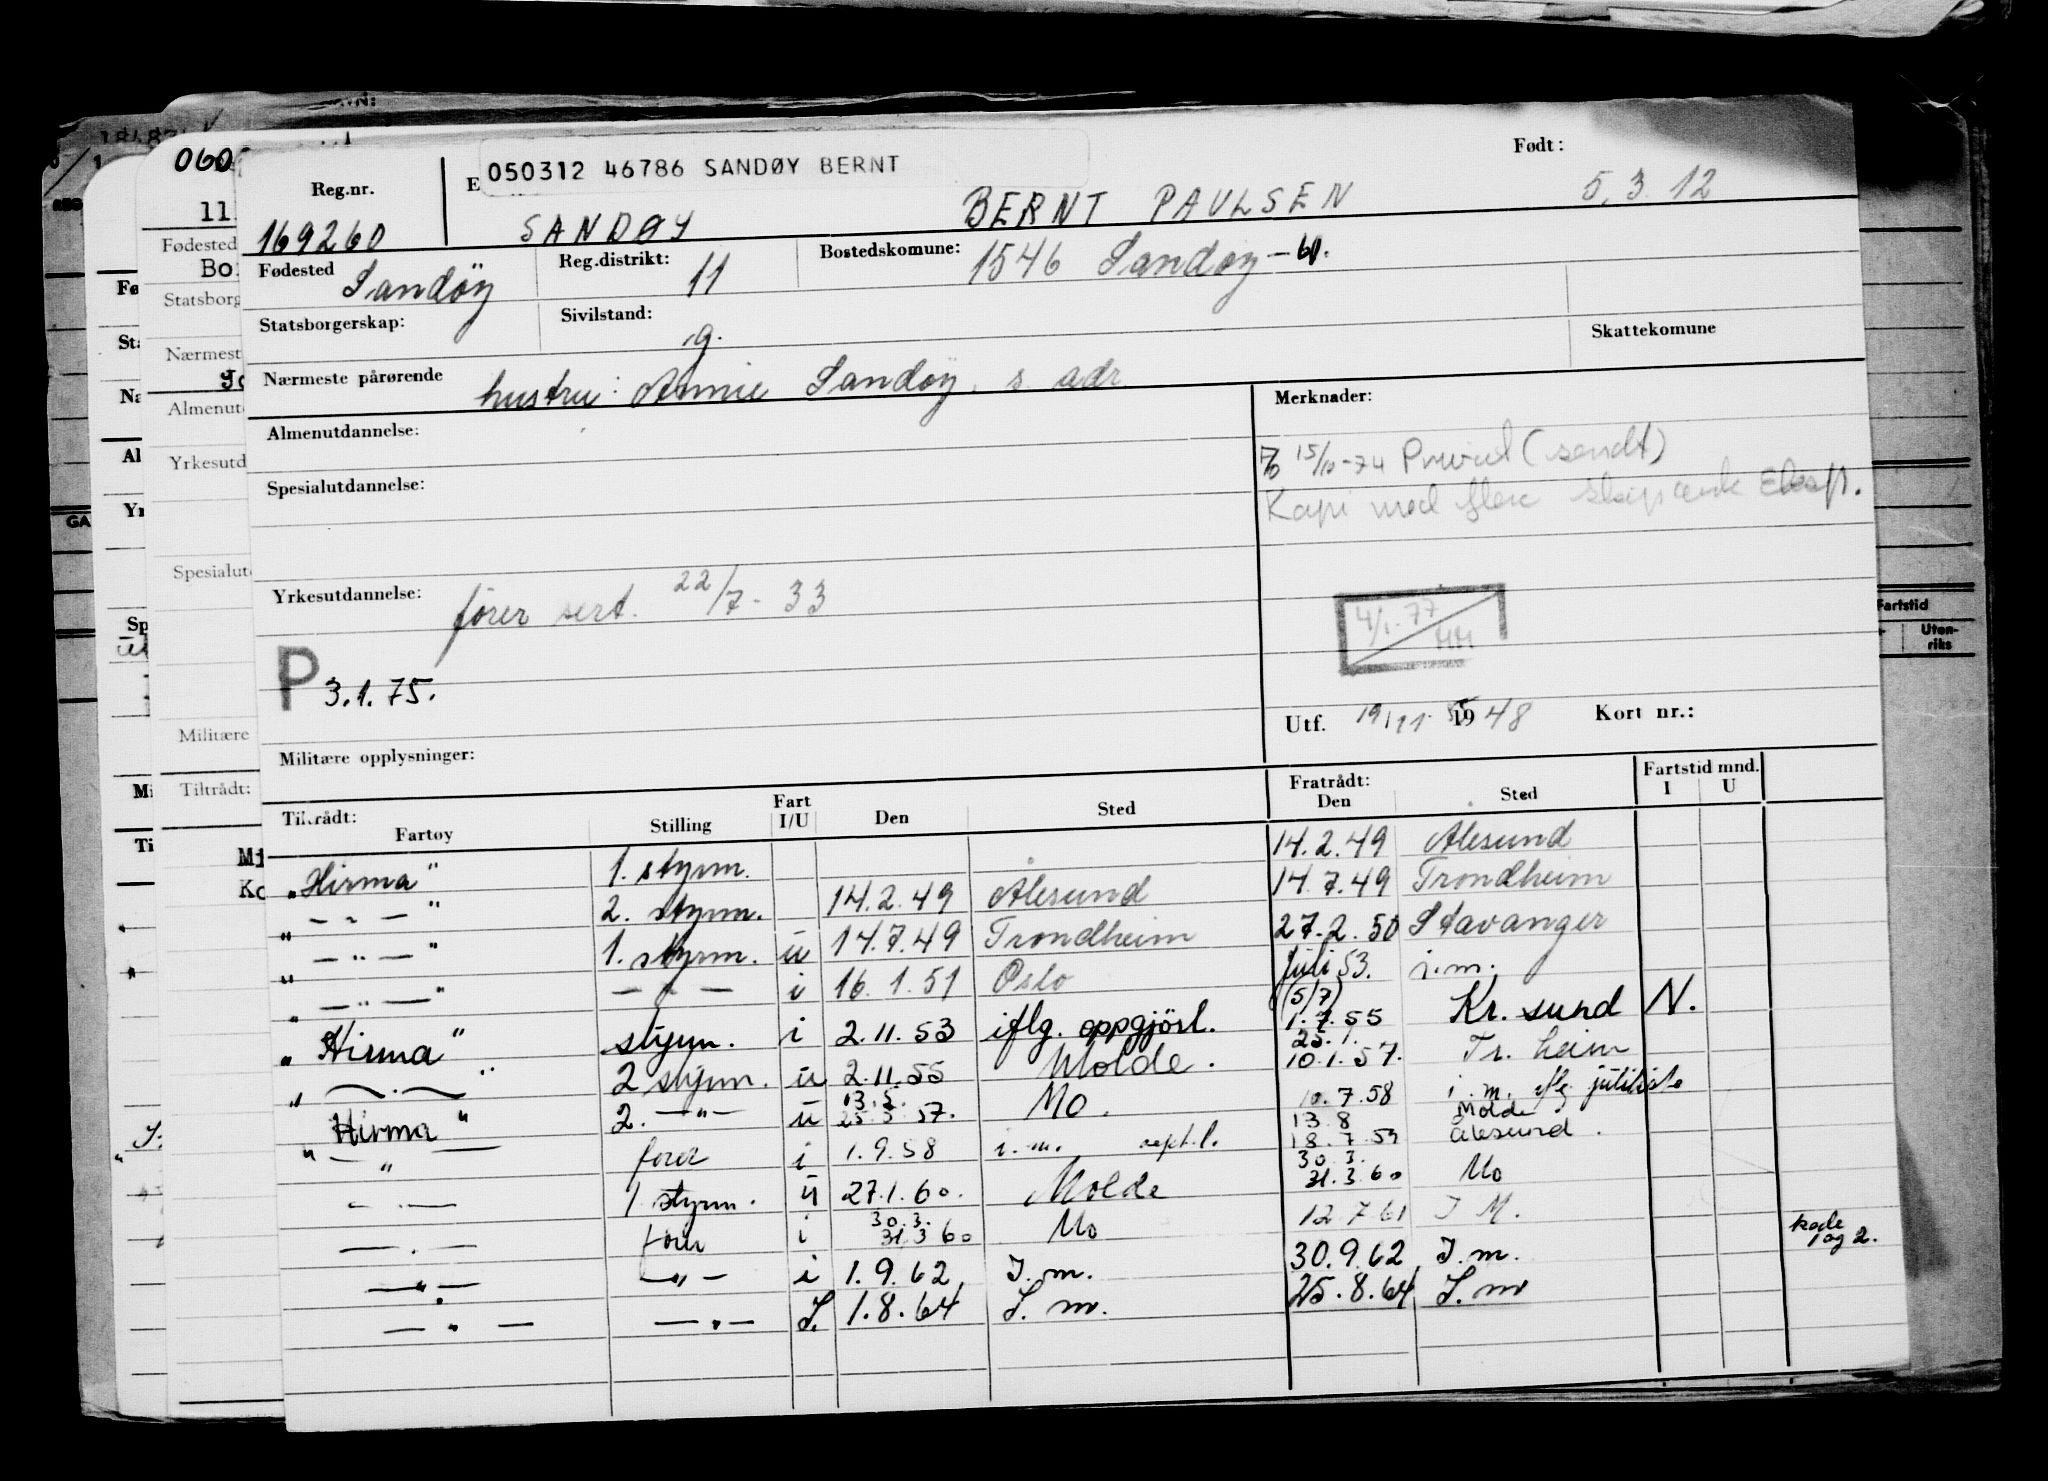 050312 46786 SANDØY BERNT
Født:
Reg.nr.
169260 SANDØY BERNT PAULSEN 5.3.12
Fødested Sandöy Reg.distrikt: 11 Bostedskomune: 1546 Sandøy - 61.
Statsborgerskap: Sivilstand: g. Skattekomune
Nærmeste pårørende hustru: Annie Sandöy, s. adr
Merknader:
Almenutdannelse:
15/10-74 (sendt)
Spesialutdannelse:
Kopi med flere
Yrkesutdannelse: fører sert. 22/7-33
4/1-77
HH
P 3.1.75.
Utf. 19/11 1948 Kort nr.:
Militære opplysninger:
Tiltrådt: Fratrådt: Fartstid mnd.
Fartøy Stilling Fart I/U Den Sted Den Sted I U
"Hirma" 1. styrm. 14.2.49 Ålesund
" — " — " 2. styrm. 14.2.49 Ålesund 14.7.49 Trondheim
" — " — " 1. styrm. u 14.7.49 Trondheim 27.2.50 Stavanger
" — " — " — " — i 16.1.51 Oslo juli 53. i.m.
"Hirma" styrm. i 2.11.53 iflg. oppgjörl. (5/7) 1.7.55 Kr. sund N.
" — . — " 2 styrm. u 2.11.55 Molde. 25.1. 10.1.57. Tr. heim
"Hirma" 2. — " — u 13.5. 25.5.57. Mo. 10.7.58 i.m. iflg juliliste
" — " — fører i 1.9.58 i.m. sept.l. 13.8 18.7.59 Molde Ålesund.
— . — 1 styrm. u 27.1.60. Molde 30.3. 31.3.60 Mo
— . — fører i 30.3. 31.3.60 Mo 12.7.61 I M.
— " — — " — i 1.9.62 I.m. 30.9.62 I.m. kode 1 og 2.
— " — — " — I. 1.8.64 I.m. 25.8.64 I.m
060
11
Fødested
Bo
Statsborg
Nærmest
Almenut
Yrkesutd
Spesialut
Militære
Tiltrådt:
Mi
Ko
Fø
Sta
Na
Al
Yr
Sp
Mi
Ti
GA
Fartstid
Uten-
riks